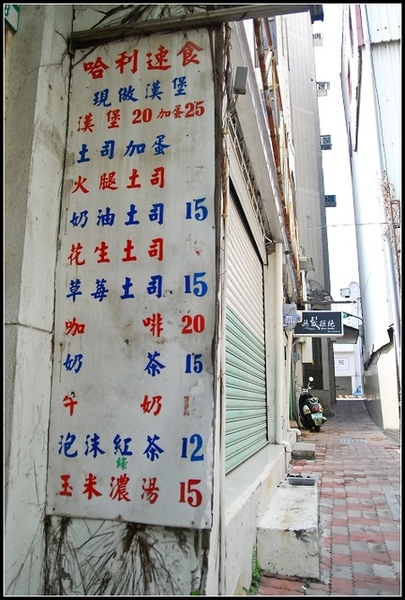 哈利速食
現做漢堡
漢堡 20 加蛋25
土司加蛋
火腿土司
奶油土司 15
花生土司
草莓土司 15
咖啡 20
奶茶 15
牛奶
泡沫紅茶 12
綠
玉米濃湯 15